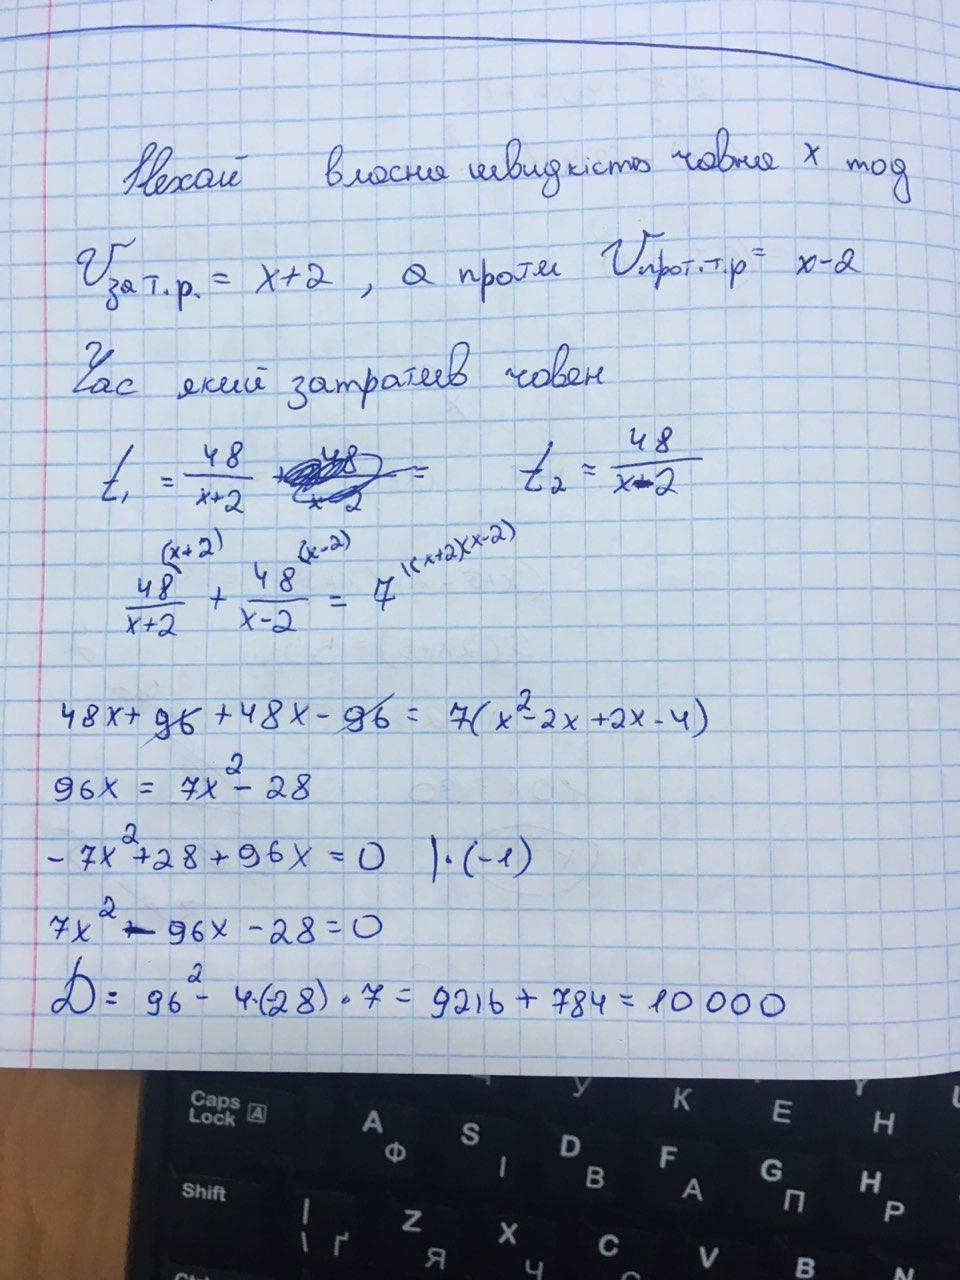 Нехай власна швидкість човна x тод
Vза т.р. = x+2 , а проти Vпрот.т.р = x-2
Час який затратив човен
t₁ = 48/(x+2) = t₂ = 48/(x-2)
48/(x+2) ^(x+2) + 48/(x-2) ^(x-2) = 7 ^((x+2)(x-2)
48x + 96 + 48x - 96 = 7(x² - 2x + 2x - 4)
96x = 7x² - 28
-7x² + 28 + 96x = 0 |·(-1)
7x² - 96x - 28 = 0
D = 96² - 4·(-28)·7 = 9216 + 784 = 10 000
Caps Lock A
У К Е Н
A Ф S І D В F А G П H Р
Shift
| \ Ґ Z Я X Ч C С V B N